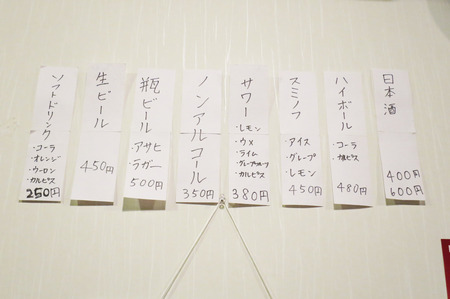 ソフトドリンク
・コーラ
・オレンジ
・ウーロン
・カルピス
250円
生ビール
450円
瓶ビール
・アサヒ
・ラガー
500円
ノンアルコール
350円
サワー
・レモン
・ウメ
・ライム
・グレープフルーツ
・カルピス
380円
スミノフ
・アイス
・グレープ
・レモン
450円
ハイボール
・コーラ
480円
日本酒
400円
600円